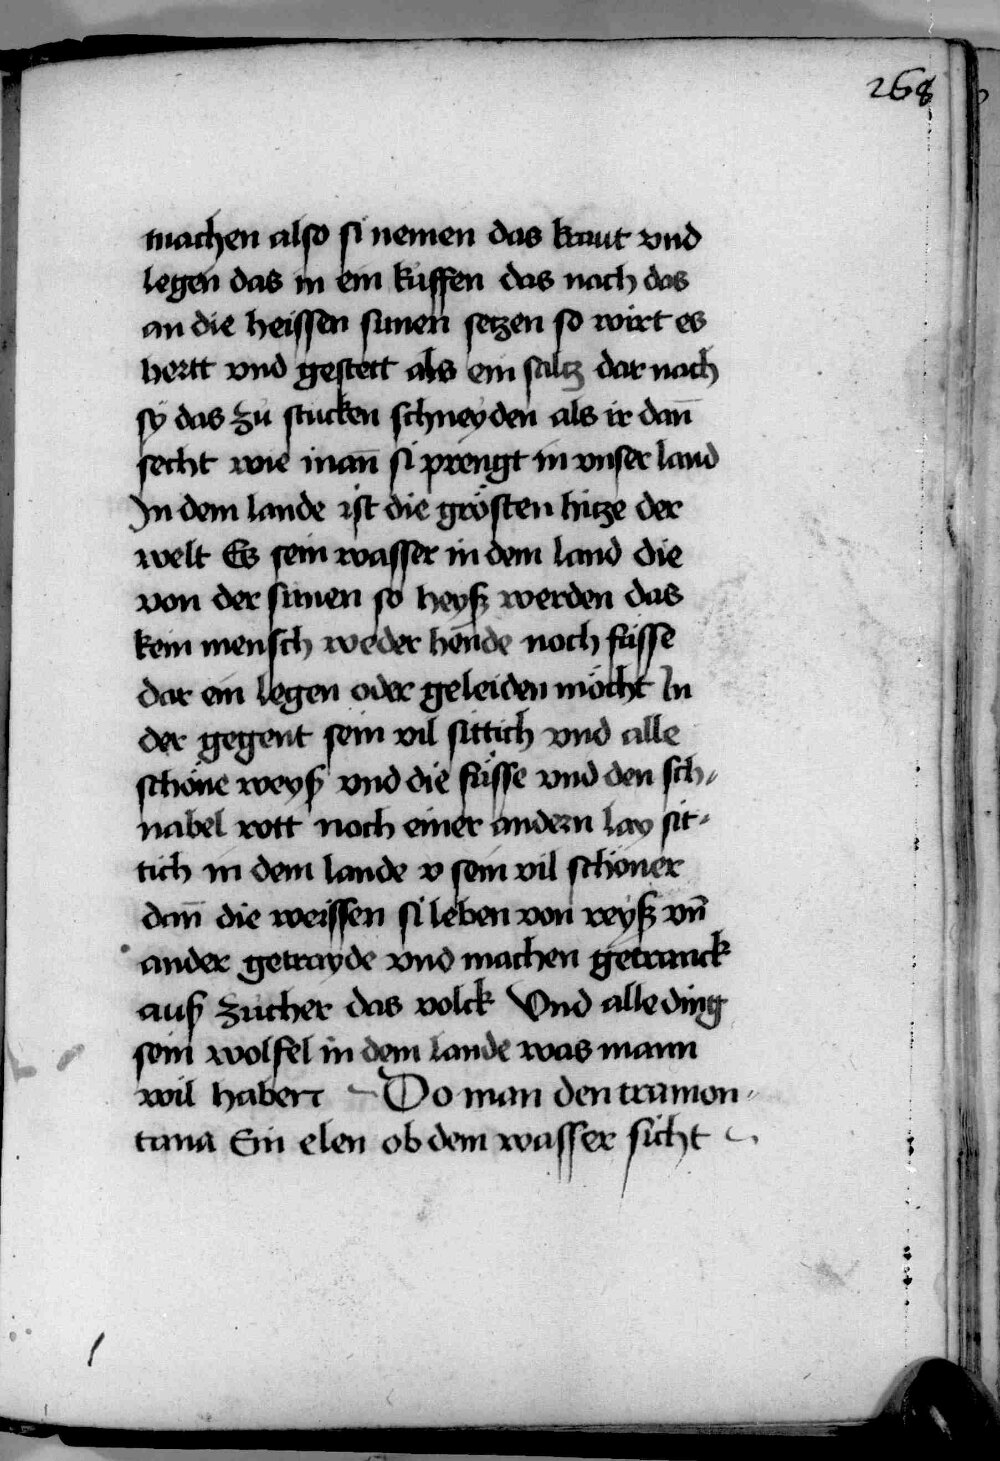 268
machen also si nemen das kraut vnd
legen das in ein küffen das nach das
an die heissen sunen setzen so wirt es
hertt vnd gestett als ein saltz dar nach
sÿ das zů stucken schneyden als ir dan̄
secht wie man̄ si prengt in vnser land
In dem lande ist die grösten hitze der
welt Es sein wasser in dem land die
von der sunen so heyß werden das
kein mensch weder hende noch füsse
dar ein legen oder geleiden möcht In
der gegent sein vil sittich vnd alle
schöne weyß vnd die füsse vnd den sch-
nabel rott noch einer andern lay sit-
tich in dem lande v sein vil schöner
dan̄ die weissen si leben von reyß vn̄
ander getrayde vnd machen getranck
auß zucher das volck Vnd alle ding
sein wolfel in dem lande was mann
wil haben Do man den tramon-
tana Ein elen ob dem wasser sicht